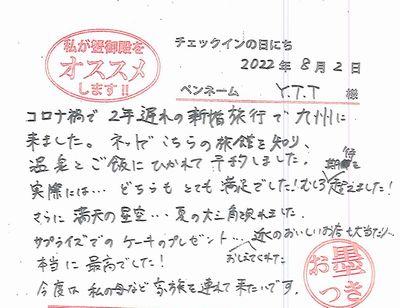 私が蟹御殿を
オススメ
します!!
チェックインの日にち
2022年 8月 2日
ペンネーム Y.T.T 様
コロナ禍で 2年遅れの新婚旅行で九州に
来ました。ネットでこちらの旅館を知り、
温泉とご飯にひかれて予約しました。
実際には… どちらも とても 満足でした!むしろ期待を超えました!
さらに 満天の星空… 夏の大三角見れました。
サプライズでの ケーキのプレゼント… 近くのおいしいお店も大当たり…
おしえてくれた
本当に 最高でした!
今度は 私の母など 家族を連れて来たいです。
お墨
つき